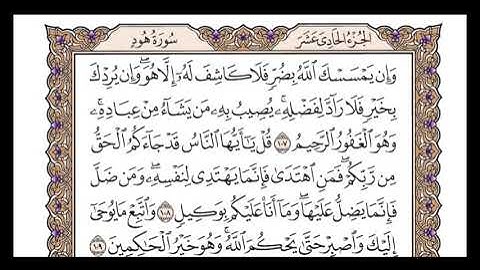 الجزء الحادى عشر سورة هود
وَإِن يَمْسَسْكَ ٱللَّهُ بِضُرٍّ فَلَا كَاشِفَ لَهُۥٓ إِلَّا هُوَۖ وَإِن يُرِدْكَ
بِخَيْرٍ فَلَا رَآدَّ لِفَضْلِهِۦۚ يُصِيبُ بِهِۦ مَن يَشَآءُ مِنْ عِبَادِهِۦۚ
وَهُوَ ٱلْغَفُورُ ٱلرَّحِيمُ ١٠٧ قُلْ يَٰٓأَيُّهَا ٱلنَّاسُ قَدْ جَآءَكُمُ ٱلْحَقُّ
مِن رَّبِّكُمْۖ فَمَنِ ٱهْتَدَىٰ فَإِنَّمَا يَهْتَدِى لِنَفْسِهِۦۖ وَمَن ضَلَّ
فَإِنَّمَا يَضِلُّ عَلَيْهَاۖ وَمَآ أَنَا۠ عَلَيْكُم بِوَكِيلٍ ١٠٨ وَٱتَّبِعْ مَا يُوحَىٰٓ
إِلَيْكَ وَٱصْبِرْ حَتَّىٰ يَحْكُمَ ٱللَّهُۚ وَهُوَ خَيْرُ ٱلْحَٰكِمِينَ ١٠٩